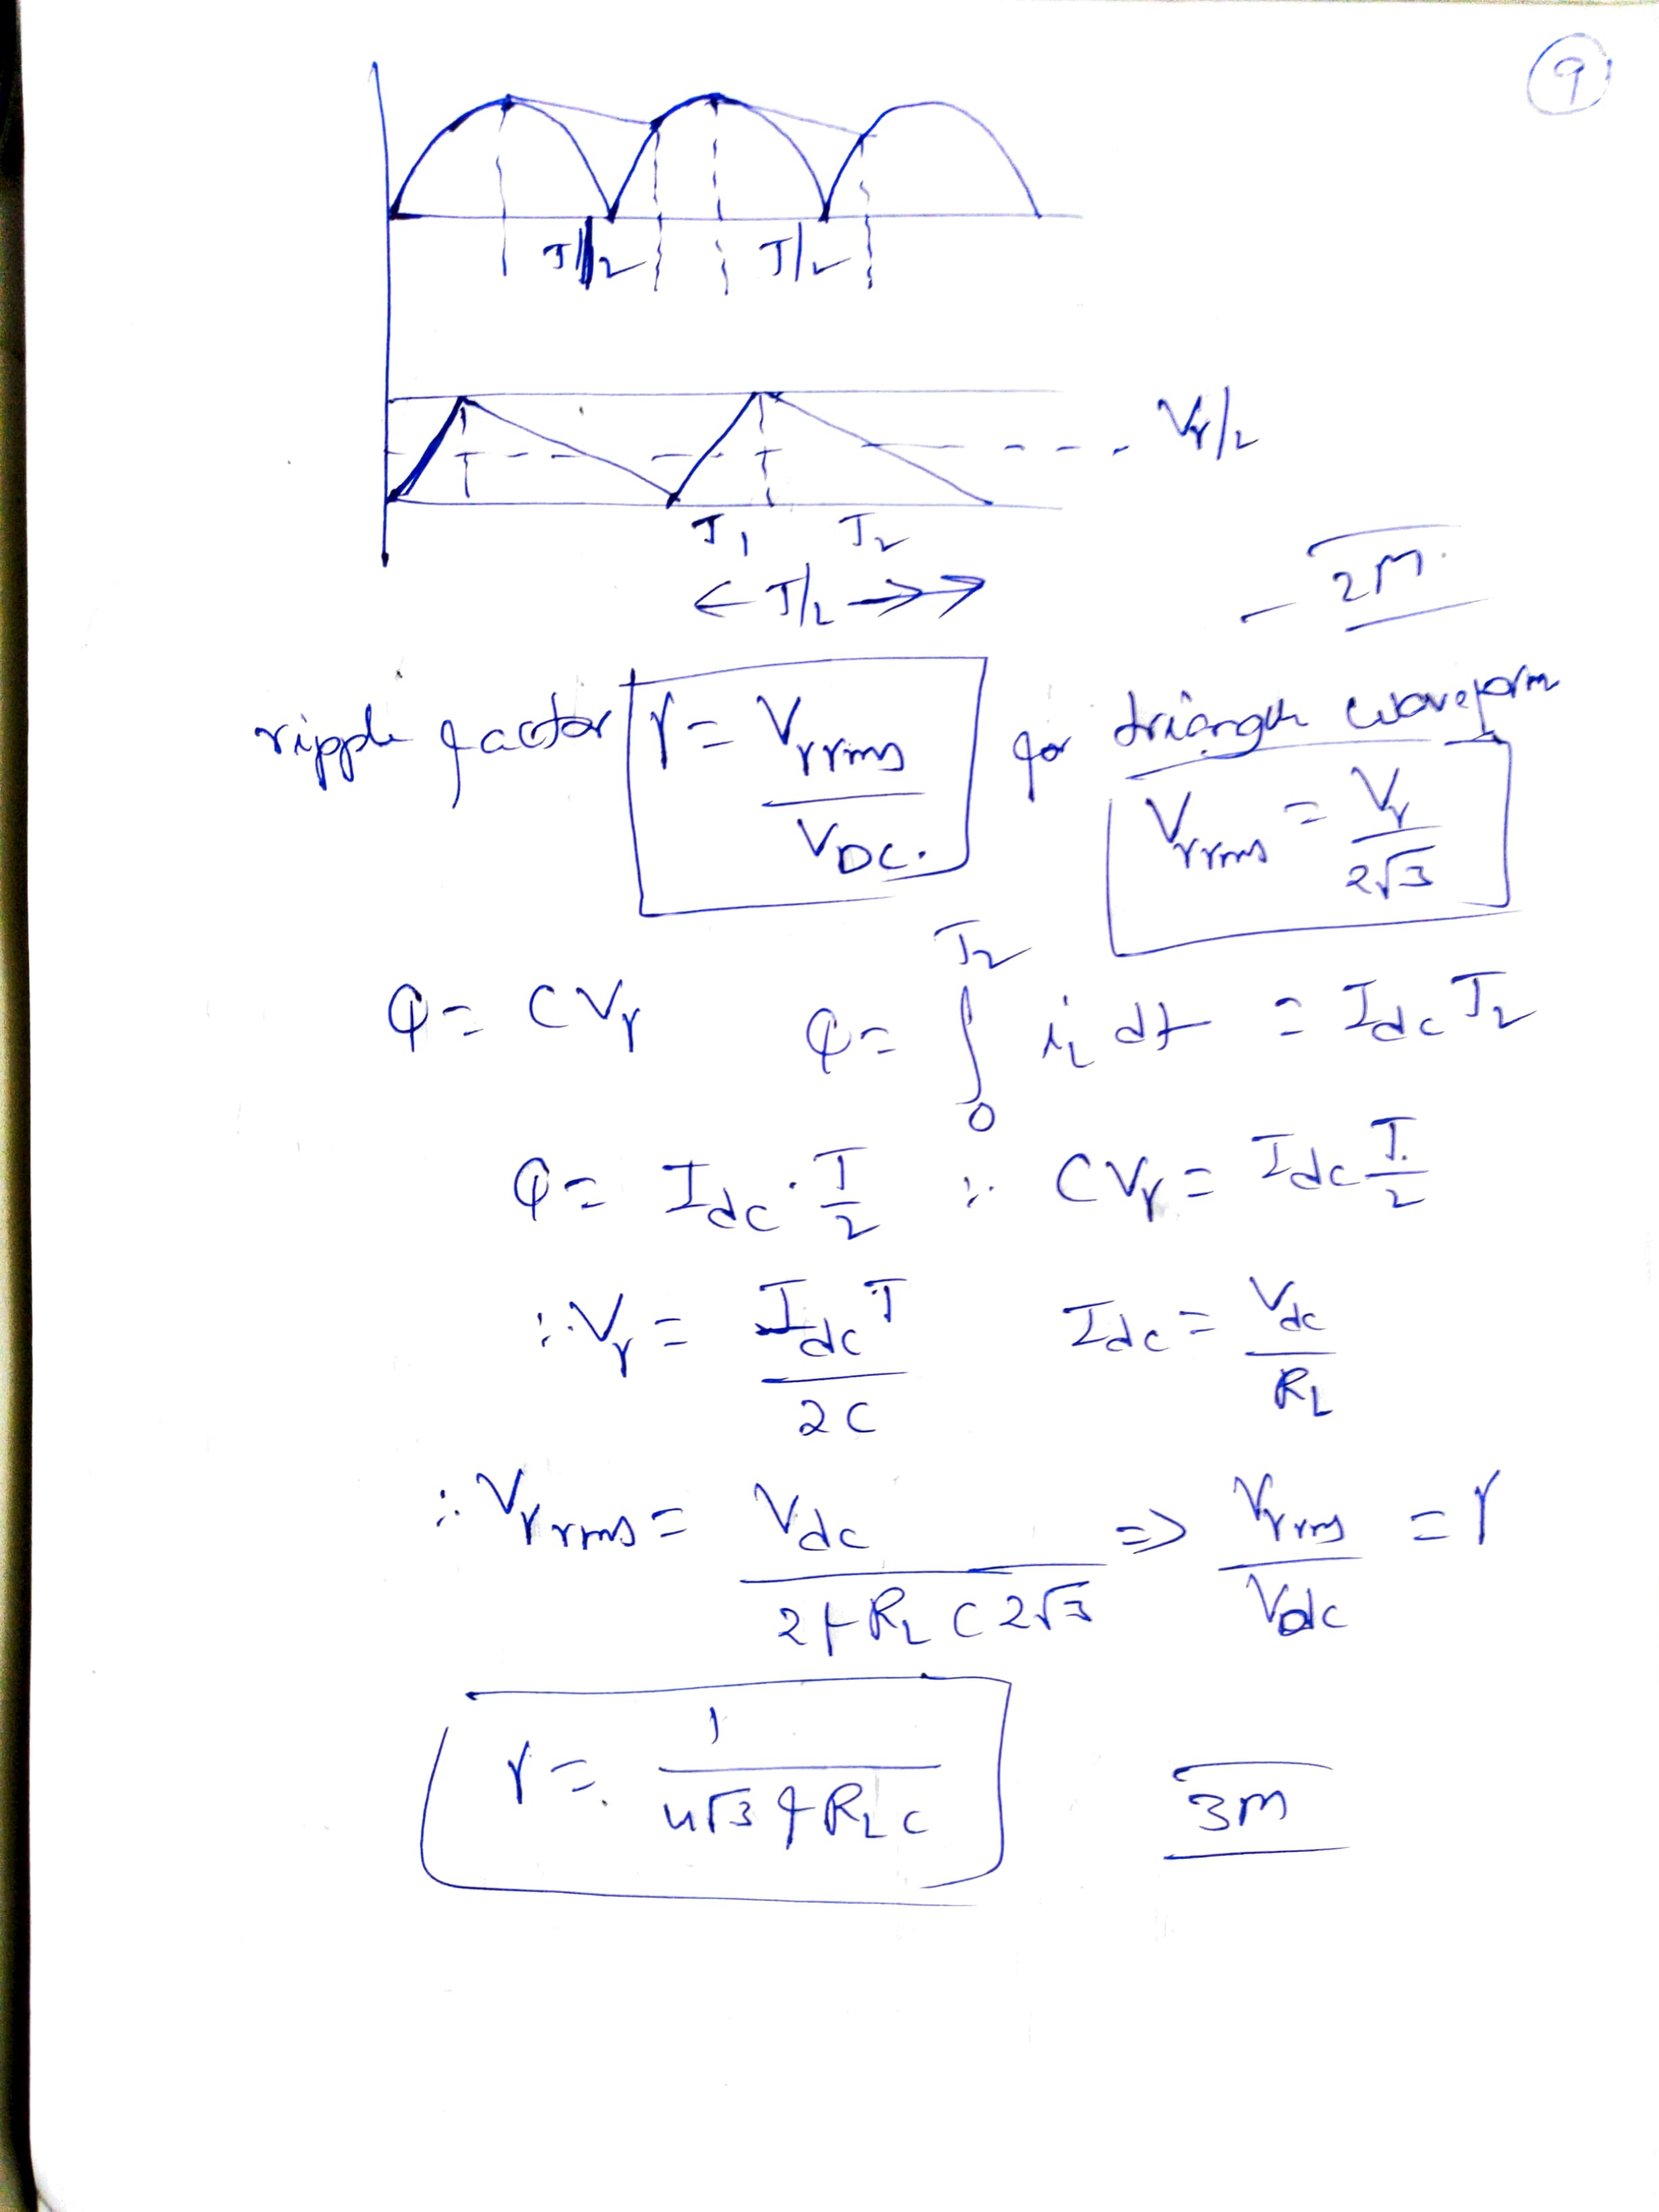 9
T/2 T/2
Vr/2
T1 T2
← T/2 →→
- 2M.
ripple factor γ = Vrrms / VDC. for triangular waveform
Vrrms = Vr / 2√3
Q = CVr Q = ∫₀^T2 iL dt = Idc T2
Q = Idc · T/2 ∵ CVr = Idc T/2
∴ Vr = Idc T / 2C Idc = Vdc / RL
∴ Vrrms = Vdc / 2f RL C 2√3 ⇒ Vrrms / Vdc = γ
γ = 1 / 4√3 f RL C 3M